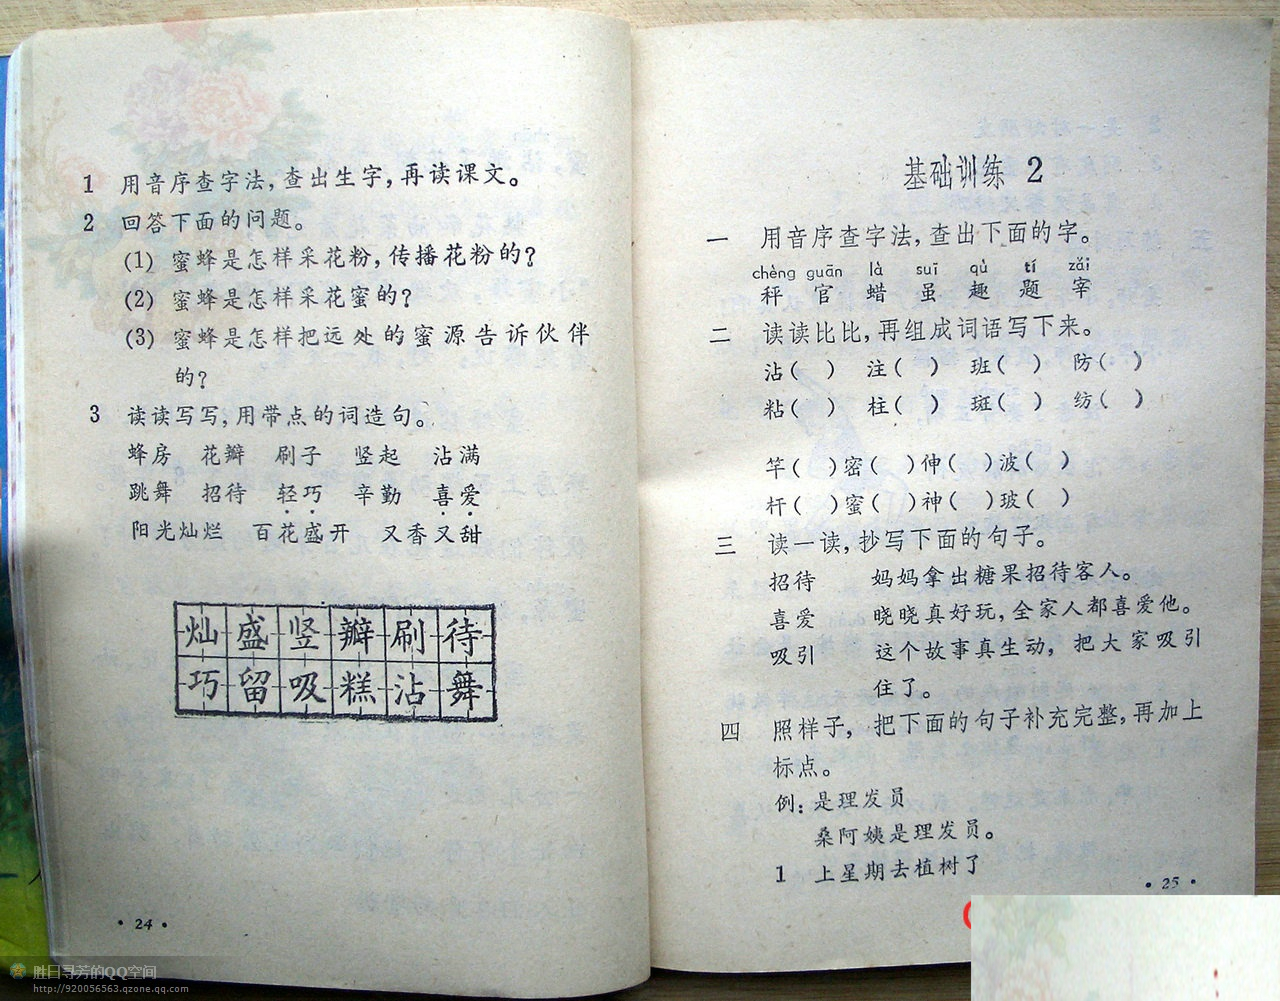 1 用音序查字法,查出生字,再读课文。
2 回答下面的问题。
(1) 蜜蜂是怎样采花粉,传播花粉的?
(2) 蜜蜂是怎样采花蜜的?
(3) 蜜蜂是怎样把远处的蜜源告诉伙伴
的?
3 读读写写,用带点的词造句。
蜂房 花瓣 刷子 竖起 沾满
跳舞 招待 轻巧 辛勤 喜爱
阳光灿烂 百花盛开 又香又甜
灿 盛 竖 瓣 刷 待
巧 留 吸 糕 沾 舞
· 24 ·
基础训练 2
一 用音序查字法,查出下面的字。
chèng guān là suī qù tí zǎi
秤 官 蜡 虽 趣 题 宰
二 读读比比,再组成词语写下来。
沾( ) 注( ) 班( ) 防( )
粘( ) 柱( ) 斑( ) 纺( )
竿( ) 密( ) 伸( ) 波( )
杆( ) 蜜( ) 神( ) 玻( )
三 读一读,抄写下面的句子。
招待 妈妈拿出糖果招待客人。
喜爱 晓晓真好玩,全家人都喜爱他。
吸引 这个故事真生动,把大家吸引
住了。
四 照样子,把下面的句子补充完整,再加上
标点。
例:是理发员
桑阿姨是理发员。
1 上星期去植树了
· 25 ·
胜日寻芳的QQ空间
http://920056563.qzone.qq.com